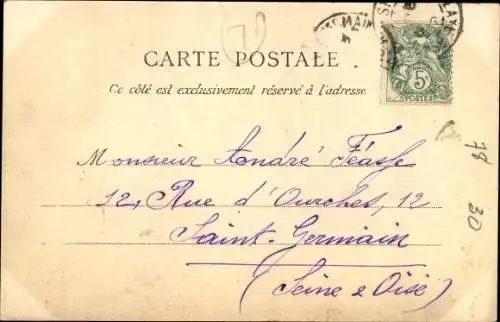 CARTE POSTALE.
Ce côté est exclusivement réservé à l'adresse
5
POSTES
Monsieur André
12, Rue d'Ourches, 12
Saint-Germain
(Seine & Oise)
78
30